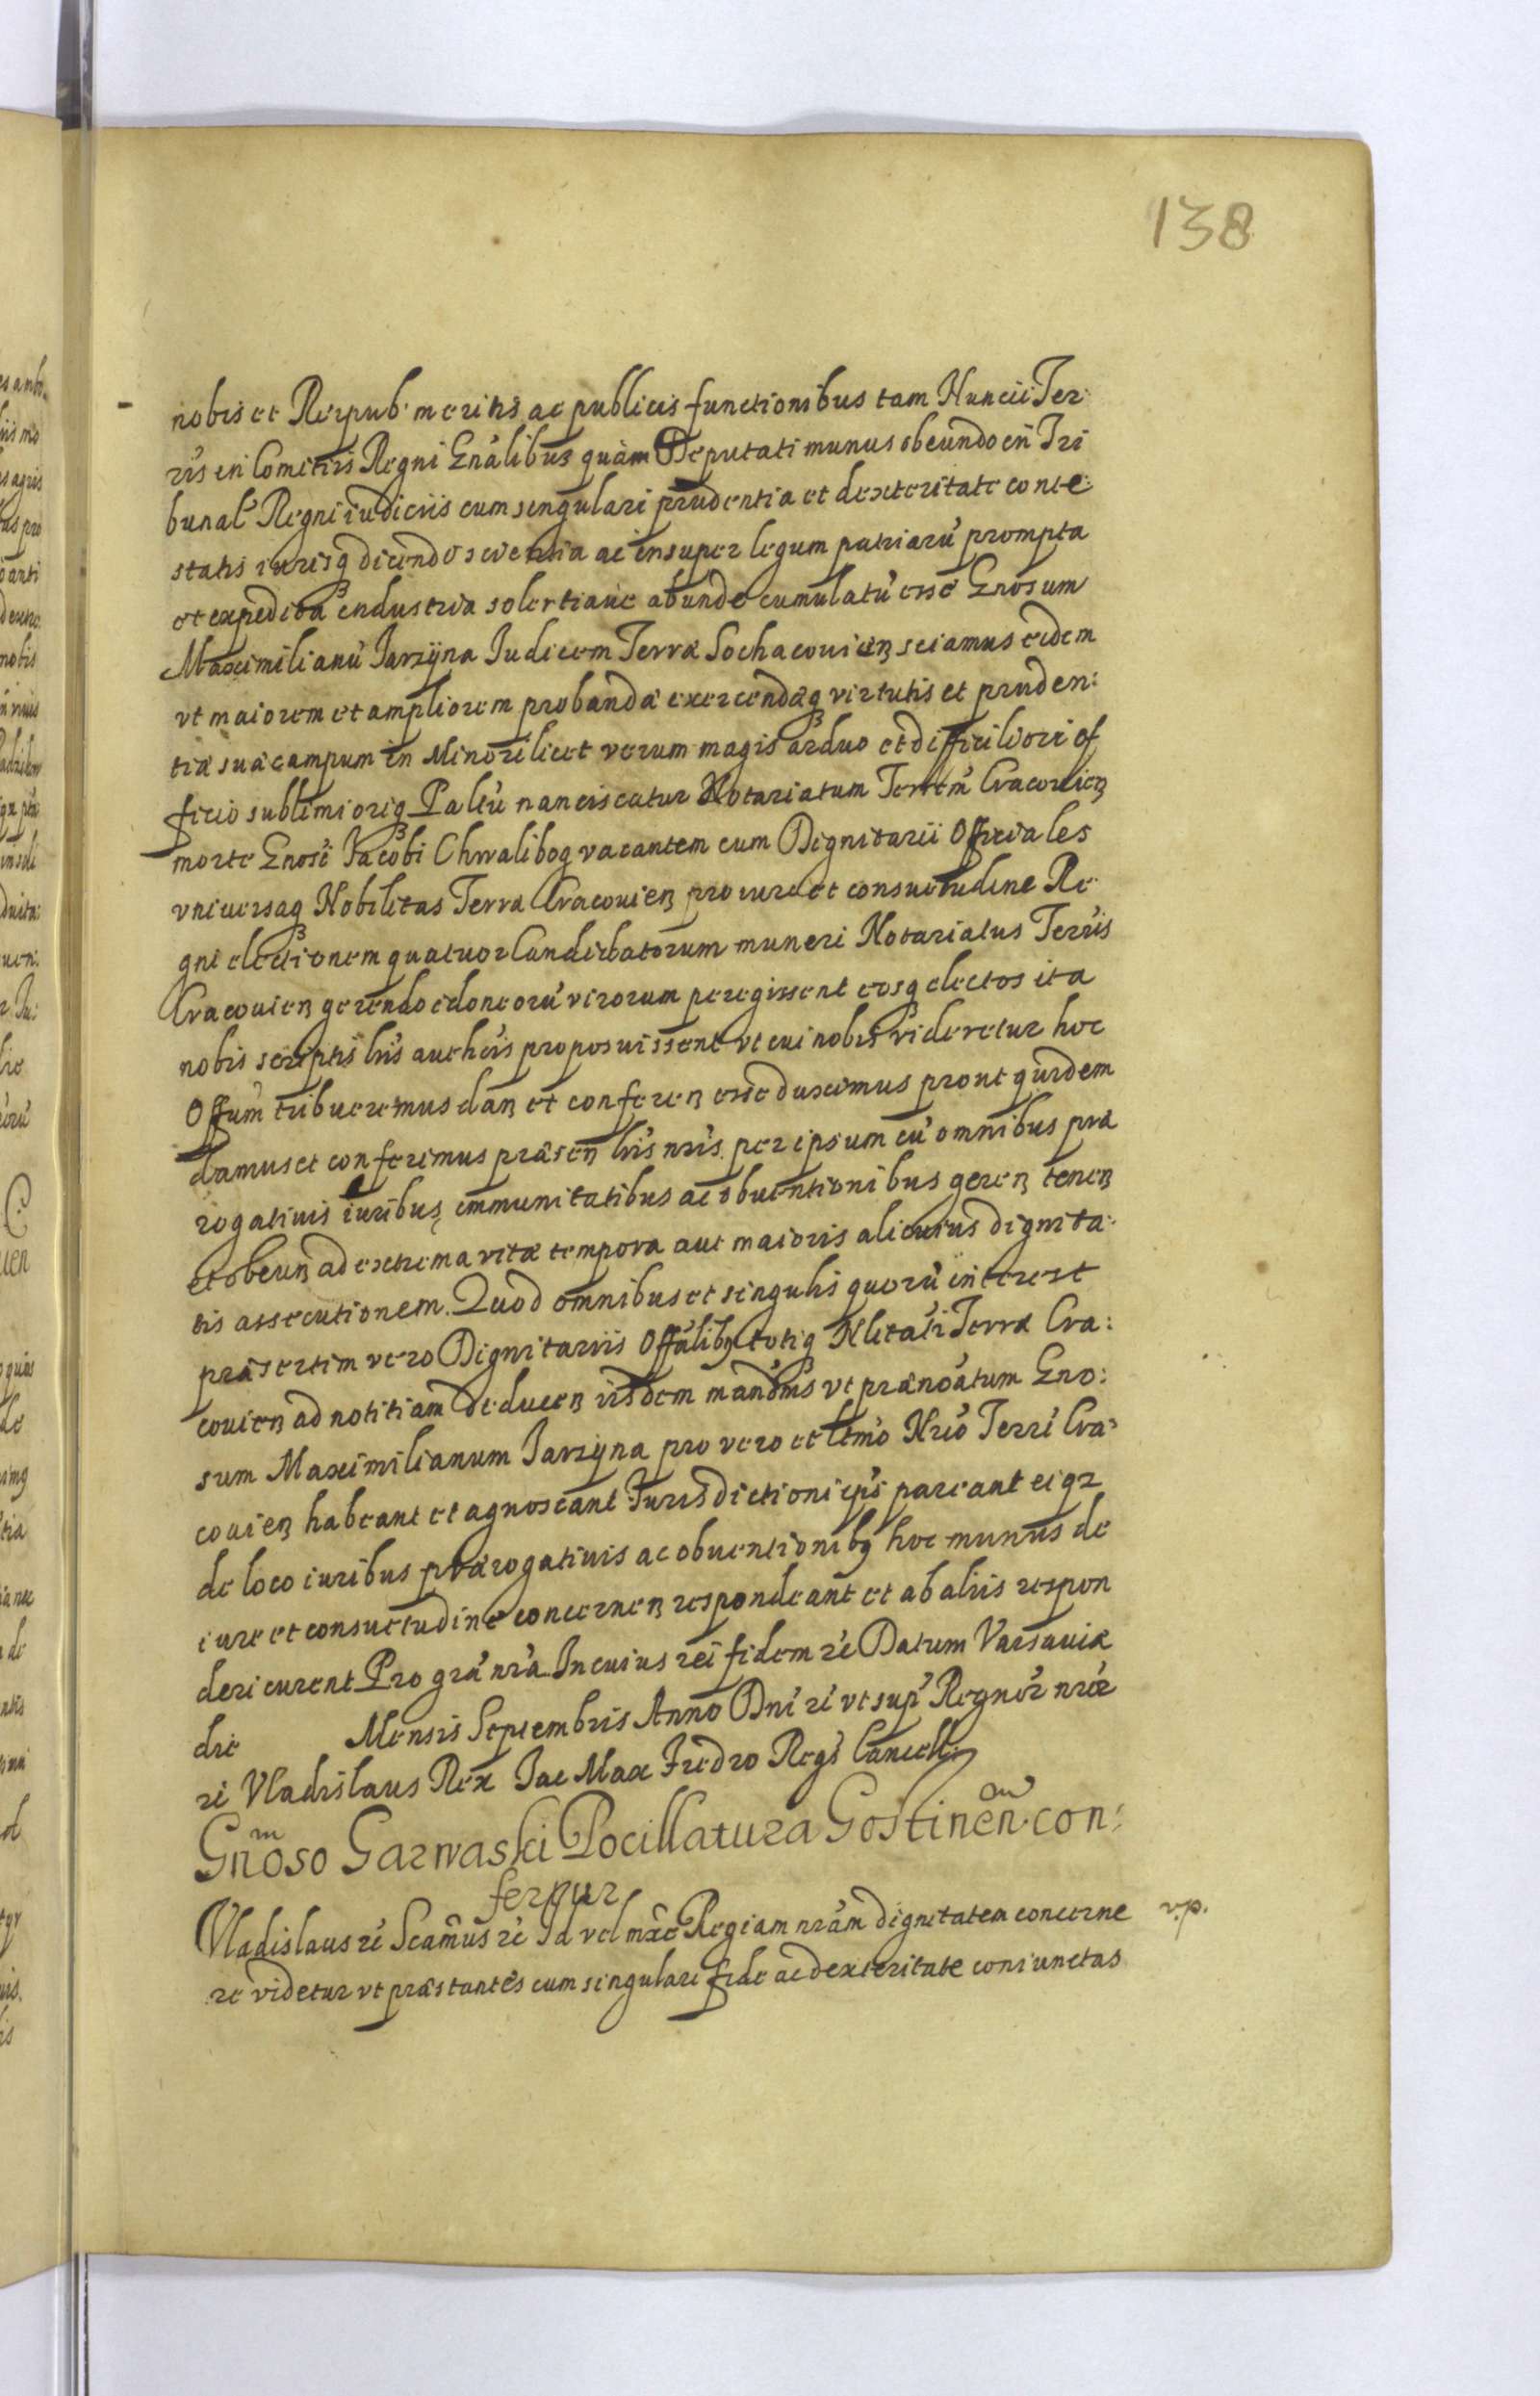 138
nobis et Reipub: meritis ac publicis functionibus tam Nuncii Ter:
ris in Comitiis Regni Gnalibus quàm Deputati munus obeundo in Tri
bunal Regni iudiciis cum singulari prudentia et dexteritate conte:
statis iurisq dicendo scientia ac insuper legum patriarũ prompta
et expedita industria solertiaue abunde cumulatũ esse Gnosum
Maximilianũ Jarzÿna Judicem Terræ Sochacouien sciamus eidem
vt maiorem et ampliorem probandæ exercendæq virtutis et pruden:
tiæ suæ campum in Minori licet verum magis arduo et difficiliori of
ficio sublimioriq Paltũ nanciscatur Notariatum Terrem Cracouien
morte Gnosi Jacobi Chwalibog vacantem cum Dignitarii Officiales
vniuersaq Nobilitas Terræ Cracouien pro iure et consuetudine Re
gni electionem quatuor Candidatorum muneri Notariatus Terris
Cracouien gerendo idoneorũ virorum peregissent eosq electos ita
nobis scriptis lris autheis proposuissent vt cui nobis videretur hoc
Offum tribueremus dan et conferen esse duximus prout quidem
damus et conferimus præsen lris nris per ipsum cũ omnibus præ
rogatiuis iuribus, immunitatibus ac obuentionibus geren tenen
et obeun ad extrema vitæ tempora aut maioris alicuius dignita:
tis assecutionem. Quod omnibus et singulis quorũ interest
præsertim vero Dignitariis Offalibq totiq Nlitati Terræ Cra:
couien ad notitiam deducen iisdem mandmus vt prænoatum Gno:
sum Maximilianum Jarzÿna pro vero et ltmo Nrio Terri Cra:
couien habeant et agnoscant Jurisdictioni ips pareant eiqz
de loco iuribus prærogatiuis ac obuentionibq hoc munus de
iure et consuetudine concernen respondeant et ab aliis respon
deri curent Pro gra nra. In cuius rei fidem zc Datum Varsauiæ
die Mensis Septembris Anno Dni zc vt sup Regnor nror
zc Vladislaus Rex Jac Max Fredro Regs Cancell
Gnoso Garwaski Pocillatura Gostinen con:
fertur
Vladislaus zc Scamus zc Id vel mxe Regiam nram dignitatem concerne v.p.
re videtur vt præstantes cum singulari fide ac dexteritate coniunctas